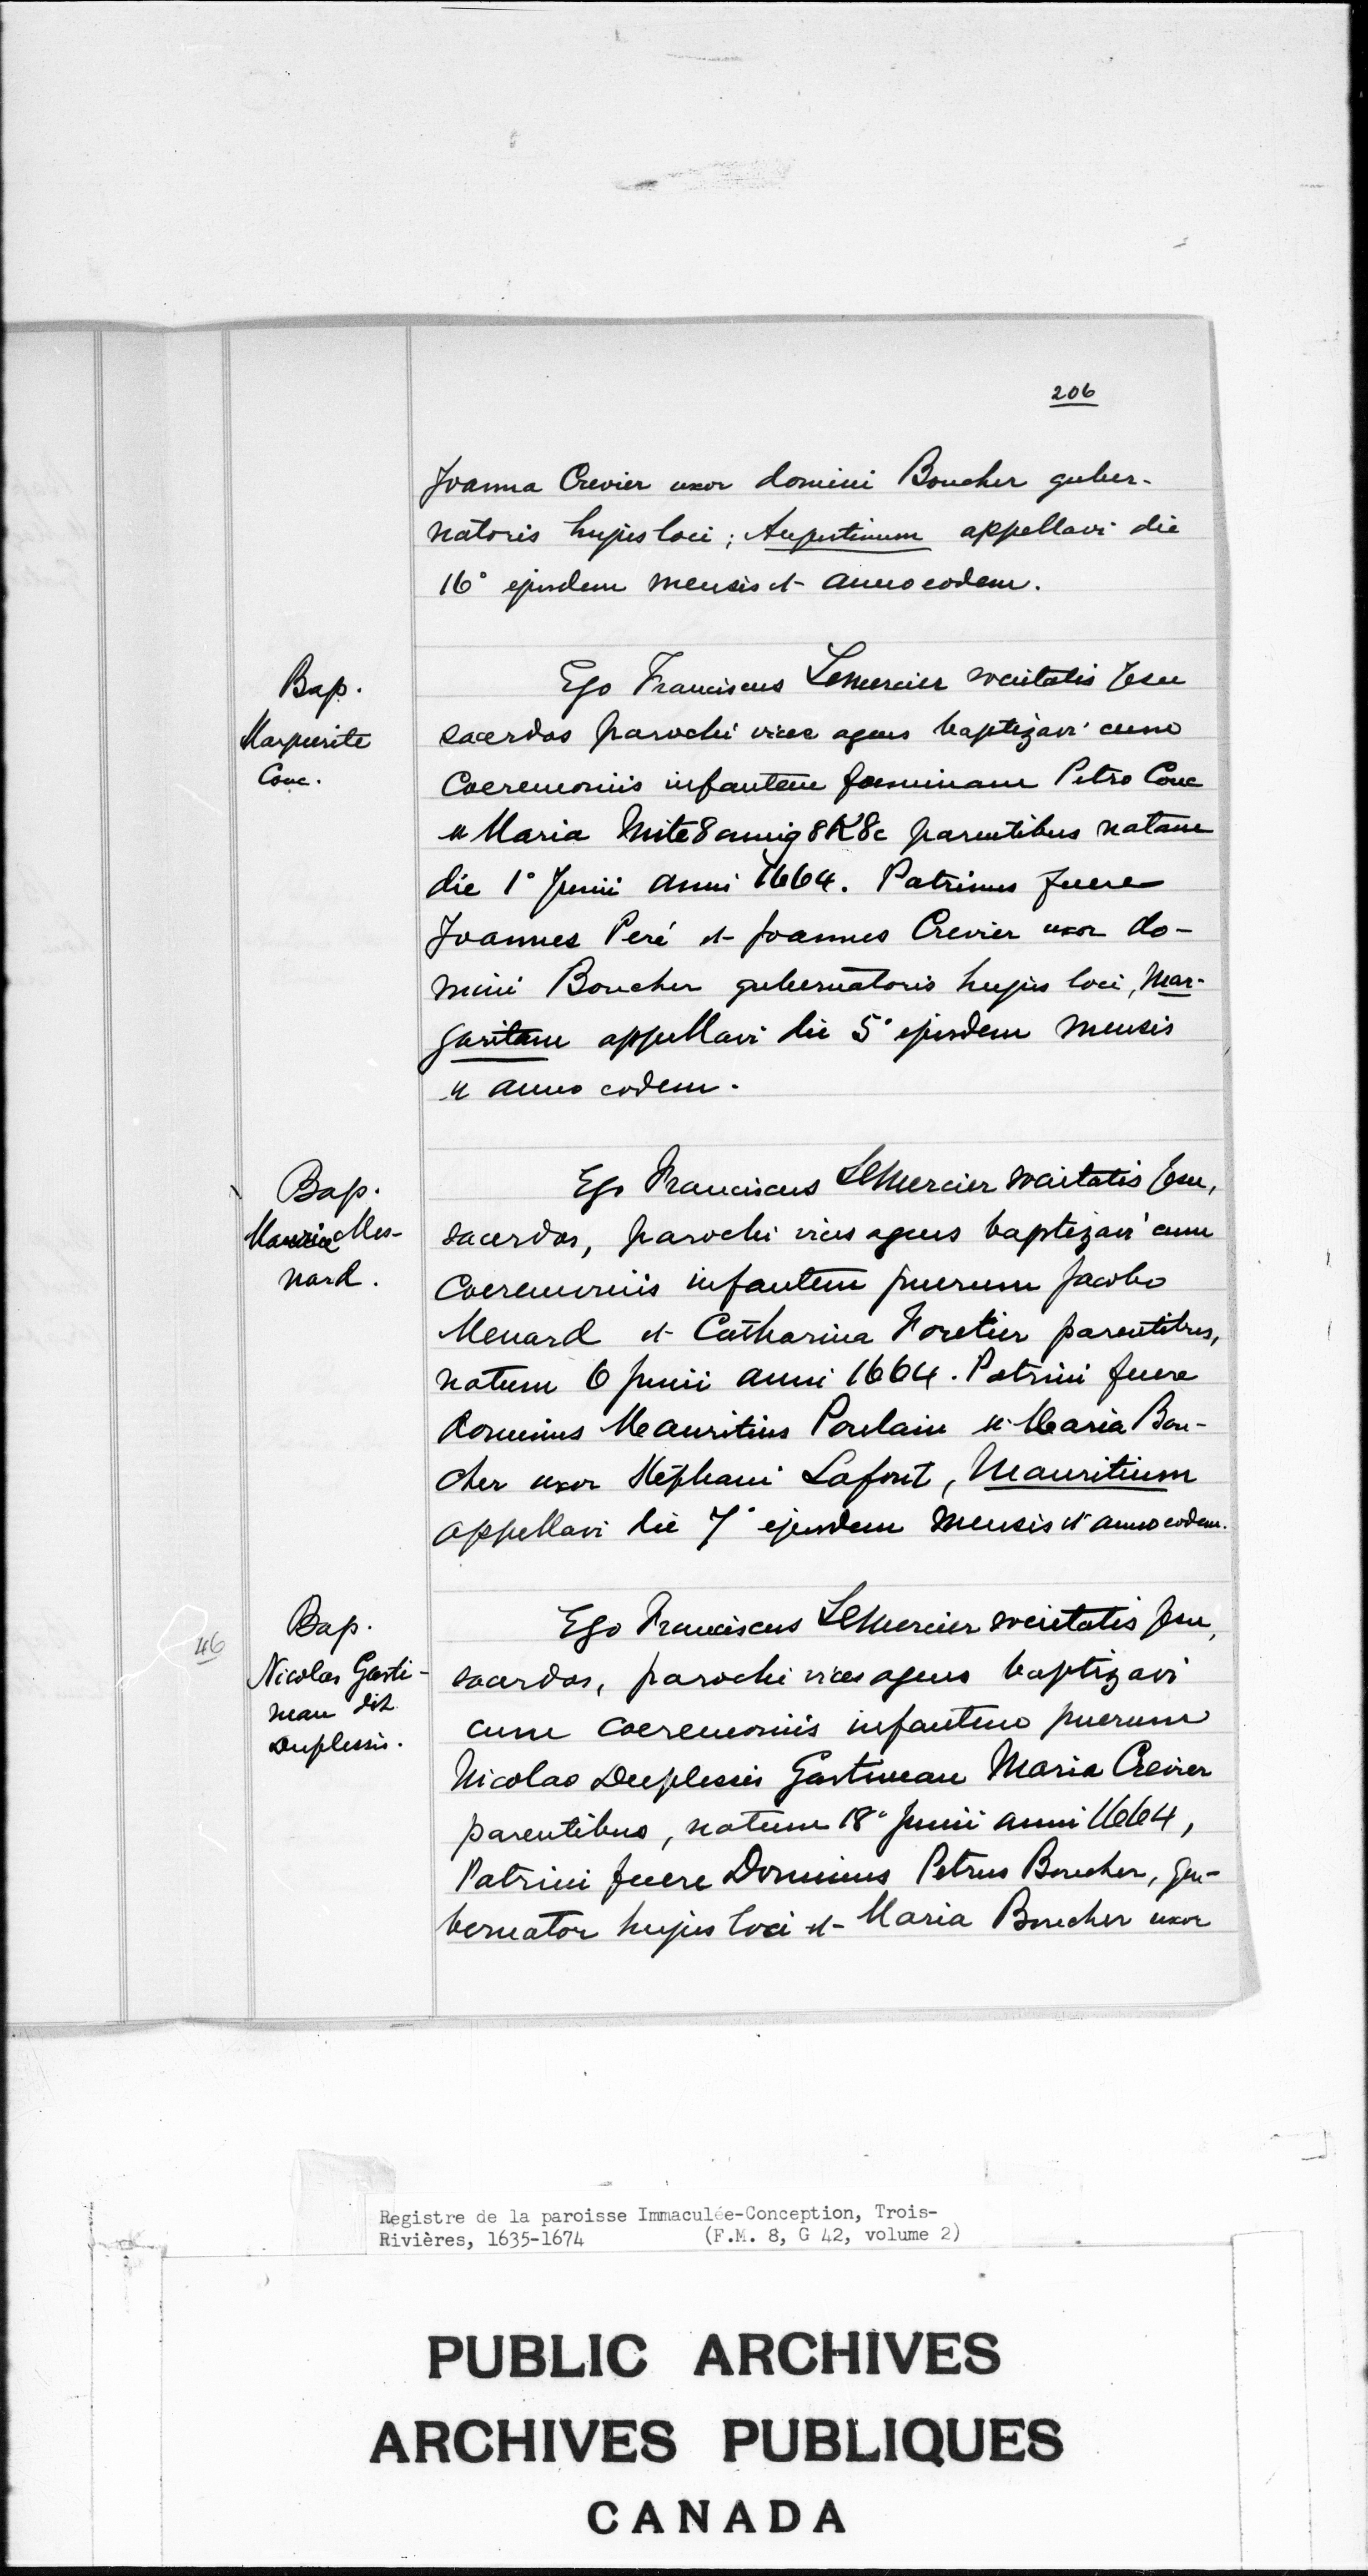 206
Joanna Crevier uxor domini Boucher guber-
natoris hujus loci; Augustinum appellavi die
16° ejusdem mensis et anno eodem.
Bap.
Marguerite
Couc.
Ego Franciscus LeMercier societatis Jesu
sacerdos parochi vices agens baptizavi cum
Coeremoniis infantem foeminam Petro Couc
et Maria Mite8amig8K8c parentibus natam
die 1° Junii anni 1664. Patrinus fuere
Joannes Peré et Joannes Crevier uxor do-
mini Boucher gubernatoris hujus loci, Mar-
garitam appellavi die 5° ejusdem mensis
et anno eodem.
Bap.
Maurice Mes-
nard.
Ego Franciscus LeMercier societatis Jesu,
sacerdos, parochi vices agens baptizavi cum
Coeremoniis infantem puerum Jacobo
Menard et Catharina Foretier parentibus,
natum 6 Junii anni 1664. Patrini fuere
Dominus Mauritius Poulain et Maria Bou-
cher uxor Stéphani Lafont, Mauritium
appellavi die 7° ejusdem mensis et anno eodem.
46
Bap.
Nicolas Gasti-
neau dit
Duplessis.
Ego Franciscus LeMercier societatis Jesu,
sacerdos, parochi vices agens baptizavi
cum coeremoniis infantem puerum
Nicolao Duplessis Gastineau Maria Crevier
parentibus, natum 18° Junii anni 1664,
Patrini fuere Dominus Petrus Boucher, gu-
bernator hujus loci et Maria Boucher uxor
Registre de la paroisse Immaculée-Conception, Trois-
Rivières, 1635-1674 (F.M. 8, G 42, volume 2)
PUBLIC ARCHIVES
ARCHIVES PUBLIQUES
CANADA